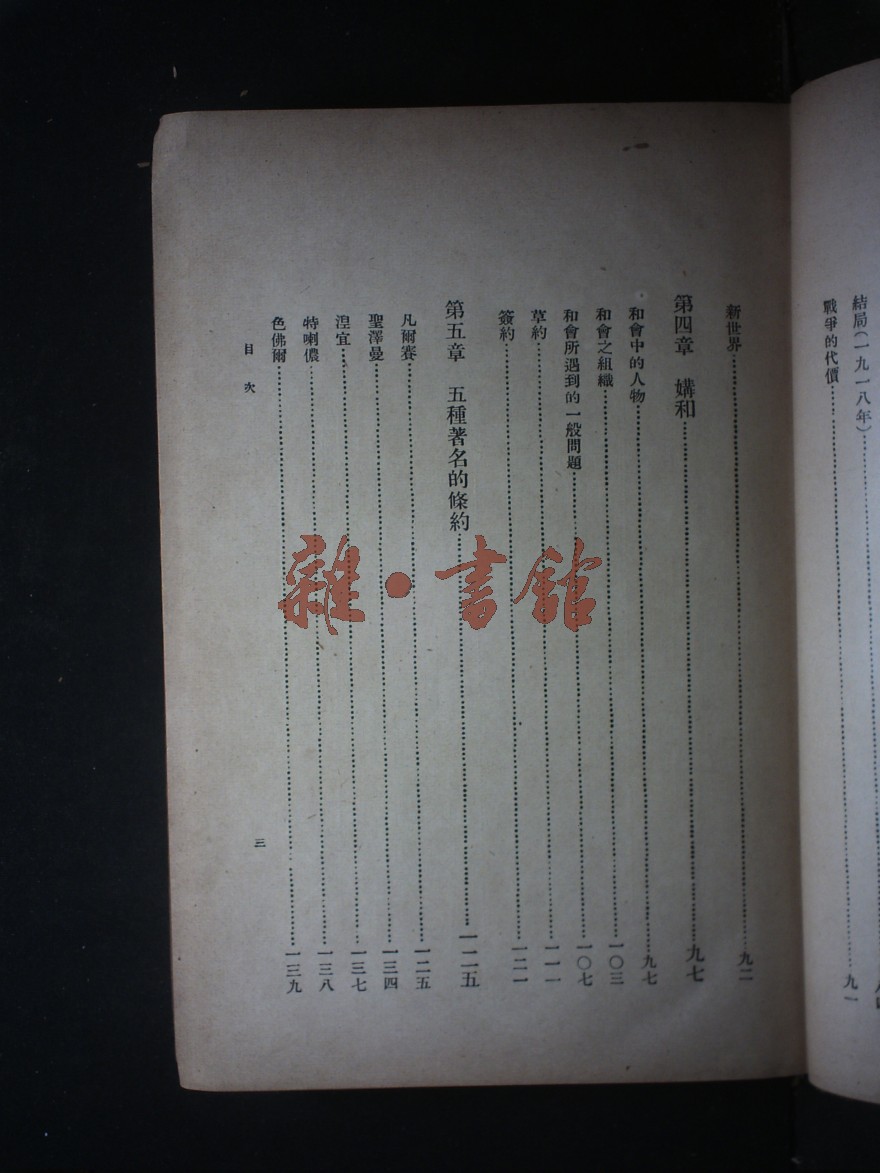 結局(一九一八年)
戰爭的代價 九一
新世界 九二
第四章 媾和 九七
和會中的人物 九七
和會之組織 一〇三
和會所遇到的一般問題 一〇七
草約 一一一
簽約 一二一
第五章 五種著名的條約 一二五
凡爾賽 一二五
聖澤曼 一三四
湼宜 一三七
特喇儂 一三八
色佛爾 一三九
目次
三
雜·書館